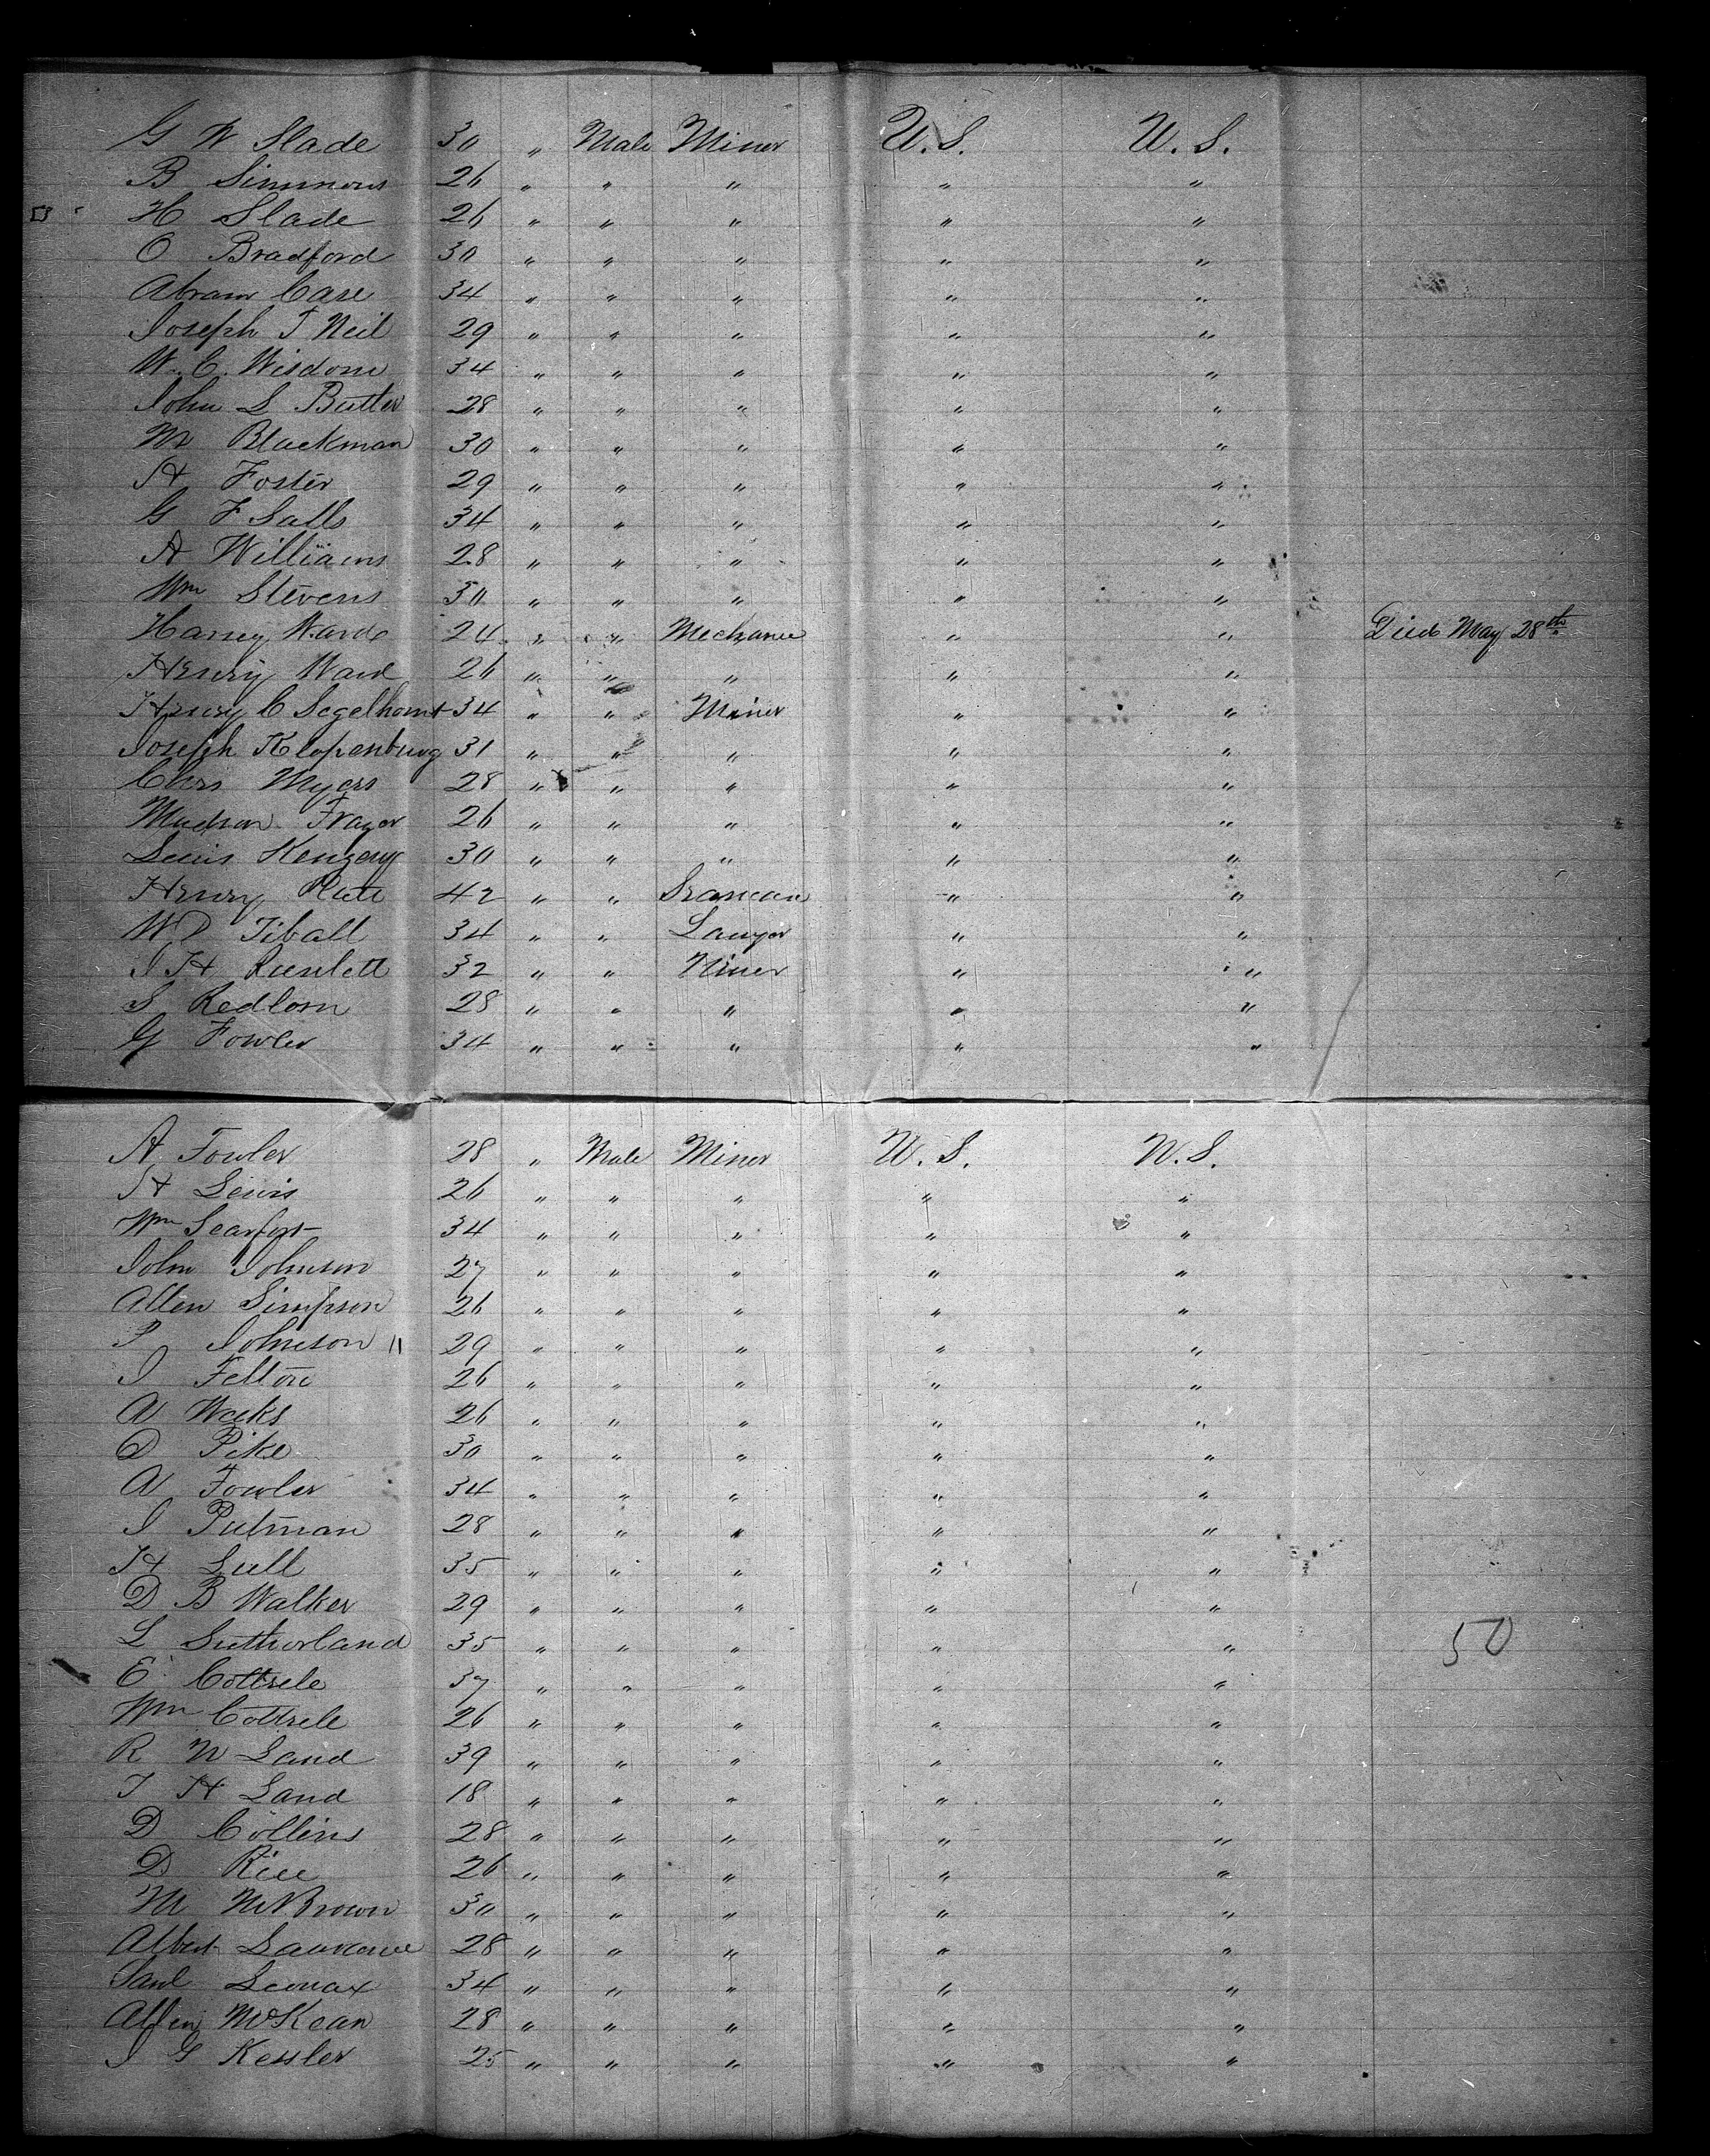 G W Slade 30 " Male Miner U.S. U.S.
B Simmons 26 " " " " "
H Slade 26 " " " " "
O Bradford 30 " " " " "
Abram Case 34 " " " " "
Joseph T Neil 29 " " " " "
W. C. Wisdom 34 " " " " "
John S Butler 28 " " " " "
M Blackman 30 " " " " "
H Foster 29 " " " " "
G F Salls 34 " " " " "
A Williams 28 " " " " "
Wm Stevens 30 " " " " "
Harvey Ward 24 " " Mechanic " " Died May 28th
Henry Ward 26 " " " " "
Henry C Segelhorst 34 " " Miner " "
Joseph Klopenburg 31 " " " " "
Chrs Myers 28 " " " " "
Madson Frazer 26 " " " " "
Lewis 30 " " " " "
Henry Plate 42 " " Seaman " "
W D Tiball 34 " " Lawyer " "
J H Runlett 32 " " Miner " "
S Redlorn 28 " " " " "
G Fowler 34 " " " " "
A Fowler 28 " Male Miner U.S. U.S.
H Lewis 26 " " " " "
Wm 34 " " " " "
John Johnson 27 " " " " "
Allen Simpson 26 " " " " "
P Johnson 11 29 " " " " "
J Felton 26 " " " " "
A Weeks 26 " " " " "
D Pike 30 " " " " "
A Fowler 34 " " " " "
J Putman 28 " " " " "
H Lull 35 " " " " "
D B Walker 29 " " " " "
L Sutherland 35 " " " " " 50
E Cottrele 37 " " " " "
Wm Cottrele 26 " " " " "
R W Land 39 " " " " "
T H Land 18 " " " " "
D Collins 28 " " " " "
D Rice 26 " " " " "
M McBrown 30 " " " " "
Albert Lawrence 28 " " " " "
Saml Lenox 34 " " " " "
McKean 28 " " " " "
J G Kessler 25 " " " " "